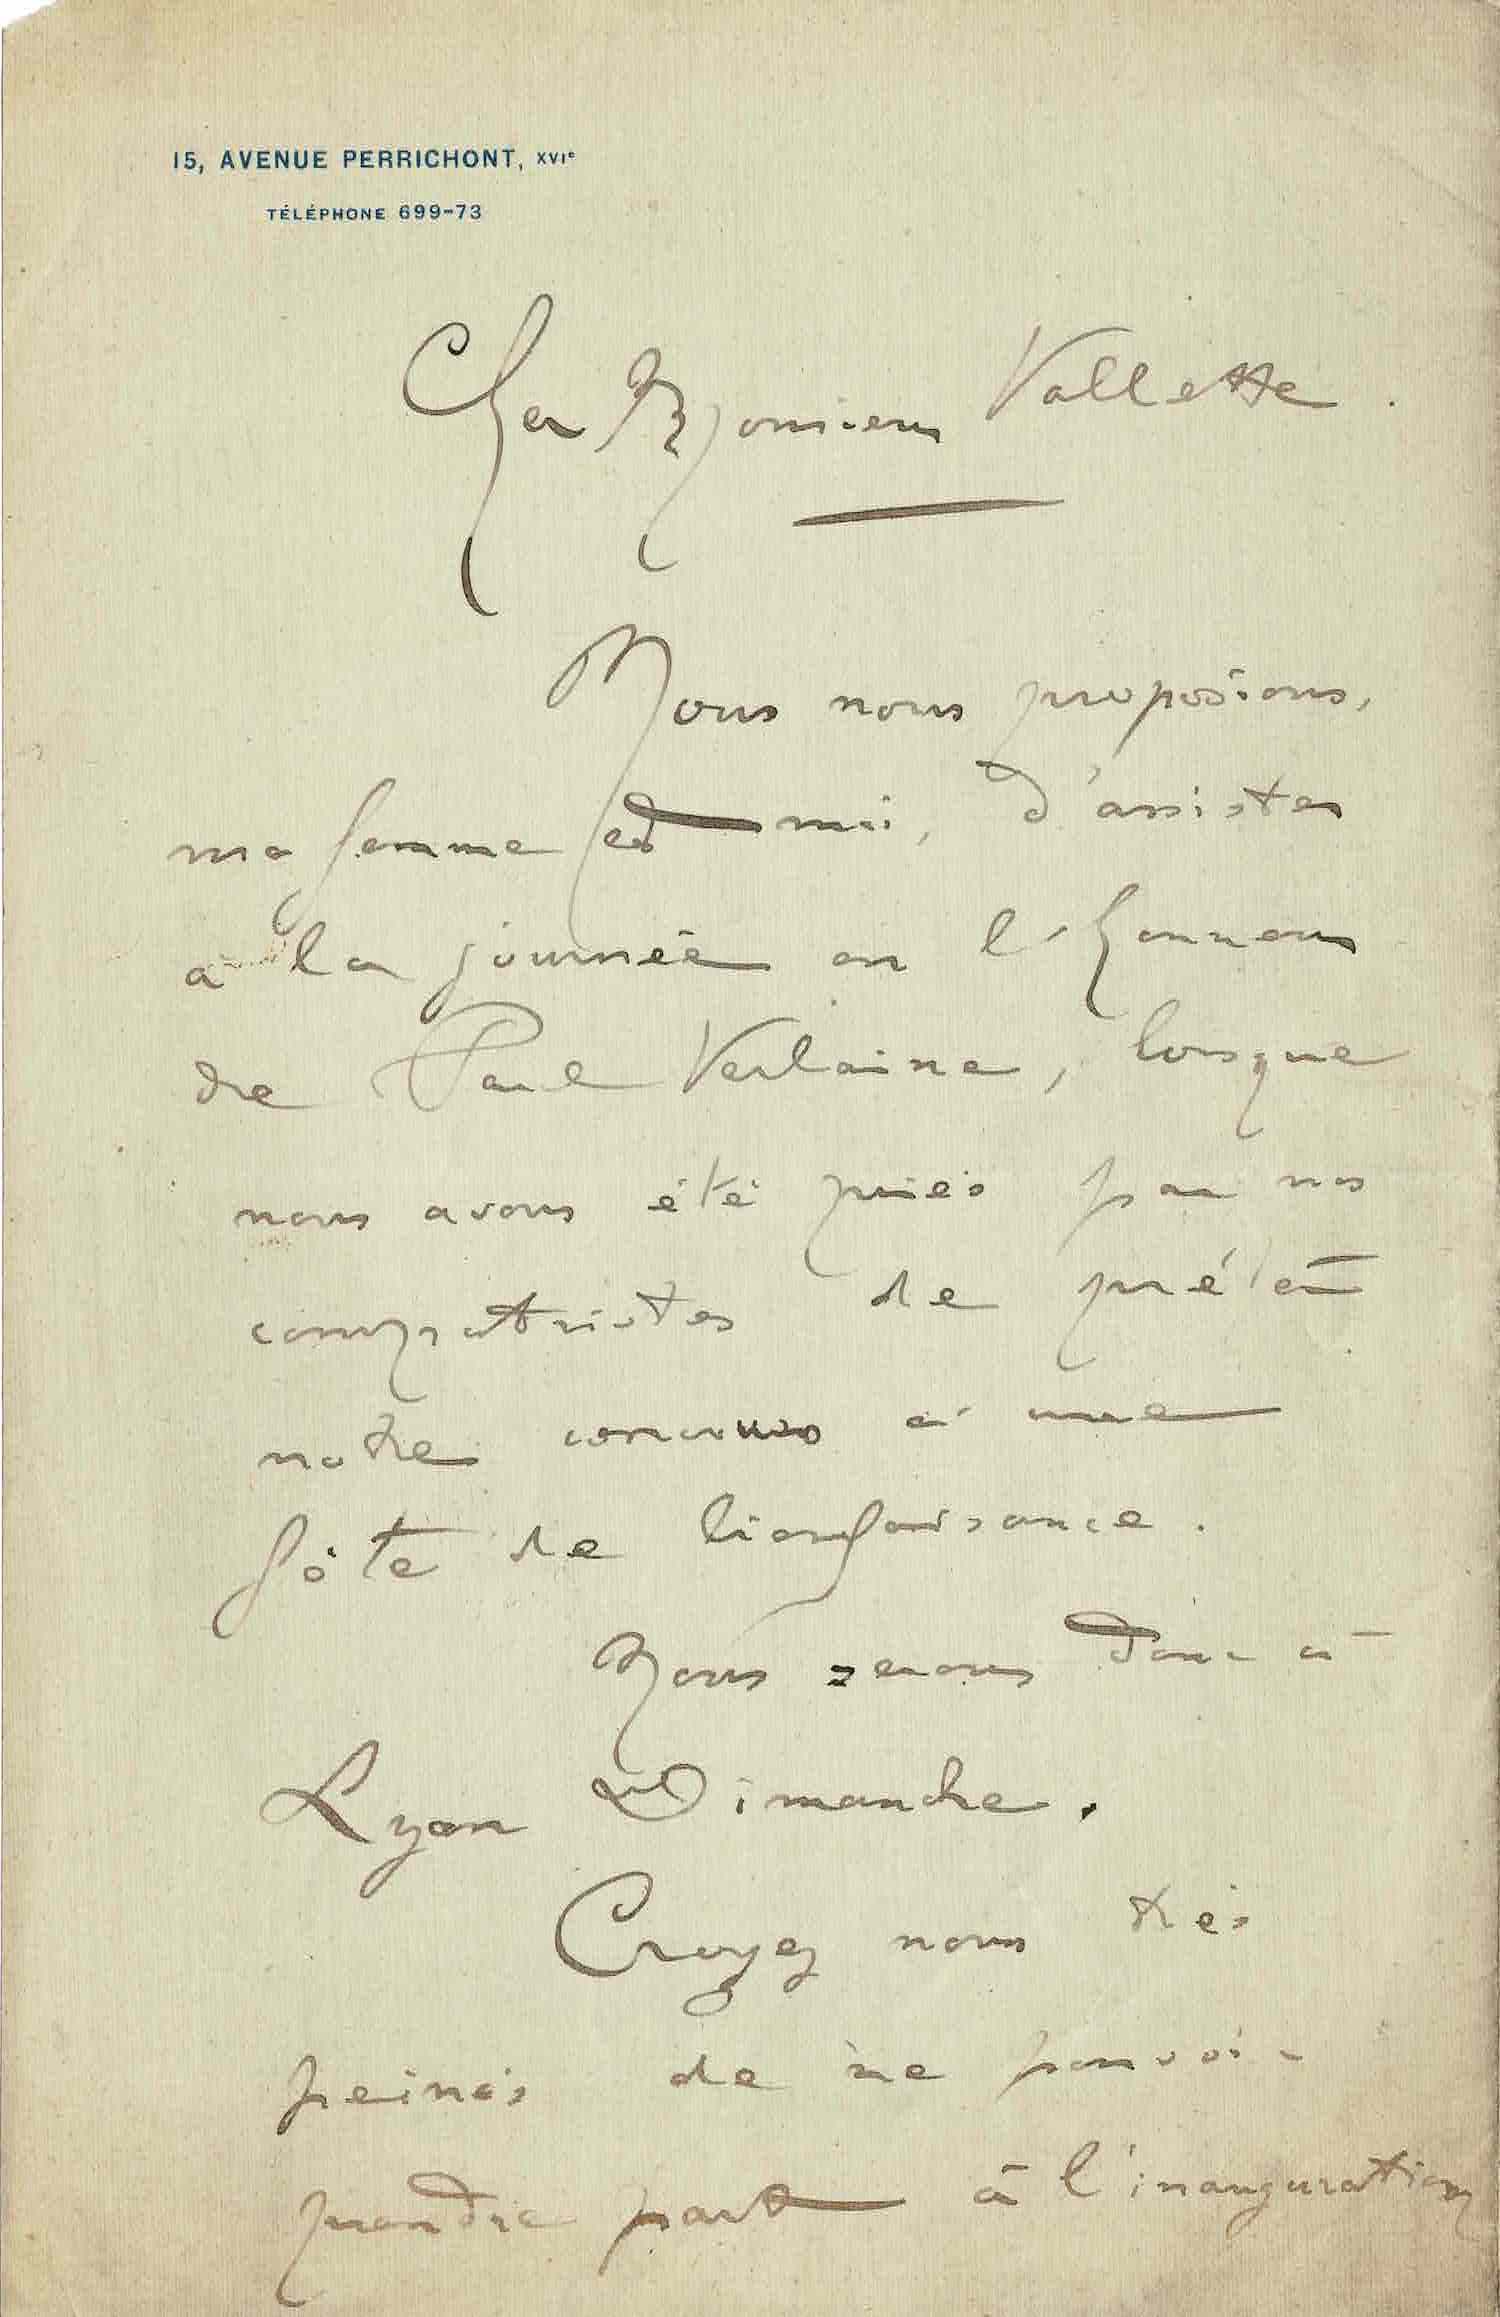 15, AVENUE PERRICHONT, XVIe
TÉLÉPHONE 699-73
Cher Monsieur Vallette.
Nous nous proposions,
ma femme et moi, d'assister
à la journée en l'honneur
de Paul Verlaine, lorsque
nous avons été priés par nos
compatriotes de prêter
notre concours à une
fête de bienfaisance.
Nous serons donc à
Lyon Dimanche.
Croyez nous très
peinés de ne pouvoir
prendre part à l'inauguration